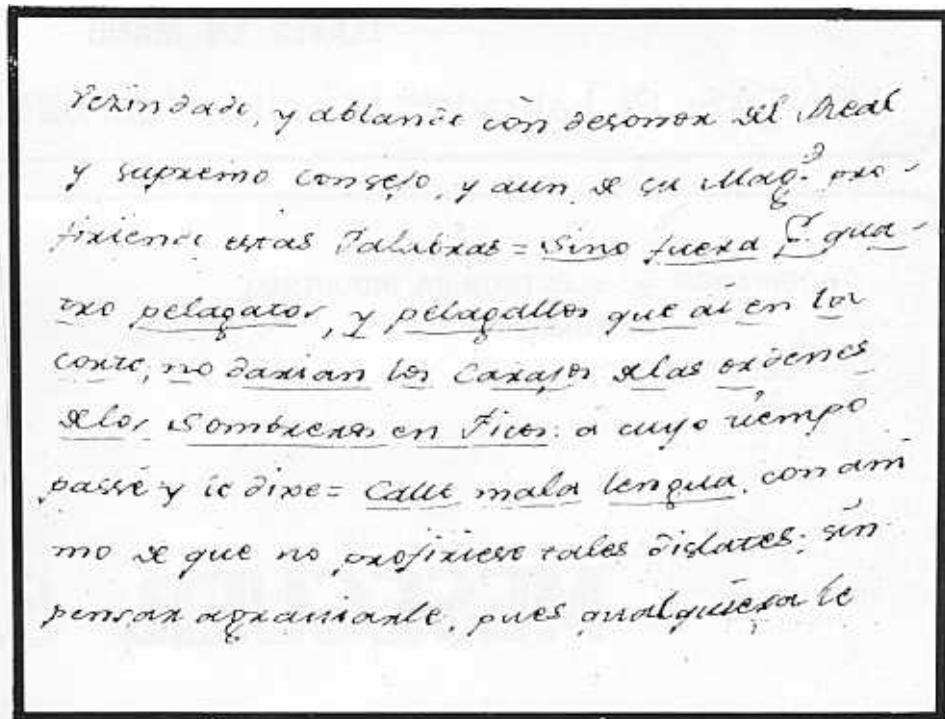 vezindade, y ablande con desonor del Real
y supremo consejo, y aun de su Mag.d pro-
firiende estas Palabras = Sino fuera P.r qua-
tro pelagatos, y pelagallos que ai en la
corte, no darian los Carajos delas ordenes
delos Sombreros en Picos: a cuyo tiempo
passé y le dixe = Calle mala lengua, con ani
mo de que no profiriese tales dislates; sin
pensar agraviarle, pues qualquiera le